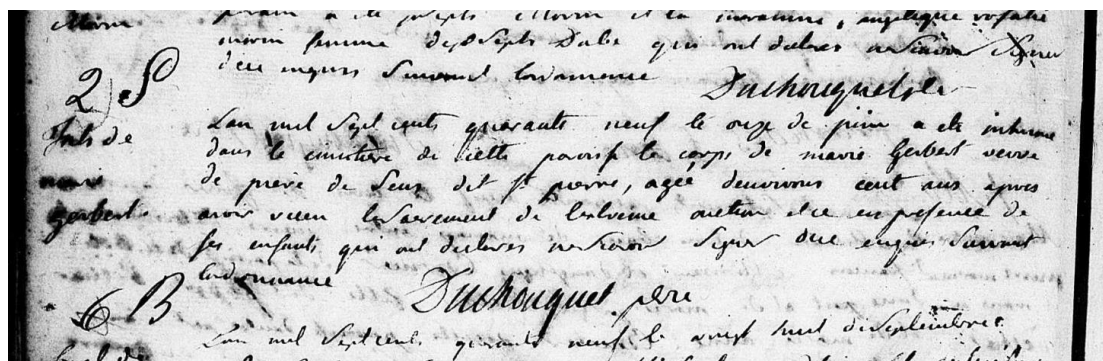 Morin
morin femme de Ssepts Dube qui ont declares ne Scavoir Signer
dece enquis Suivant Lordonnance
Duchouquet ptre
2 S
Lan mil Sept cents quarante neuf le onze de juin a ete inhumé
dans le cimetière de cette paroisse le corps de marie Gerbert veuve
de pierre de Sens dit St pierre, agée denvirons cent ans apres
avoir receu le Sacrement de lextreme onction et ce en presence de
ses enfants qui ont declares ne Scavoir Signer dece enquis Suivant
Lordonnance
de
marie
gerbert
Duchouquet ptre
6 B
Lan mil Sept cents quarante neuf le vingt huit de Septembre